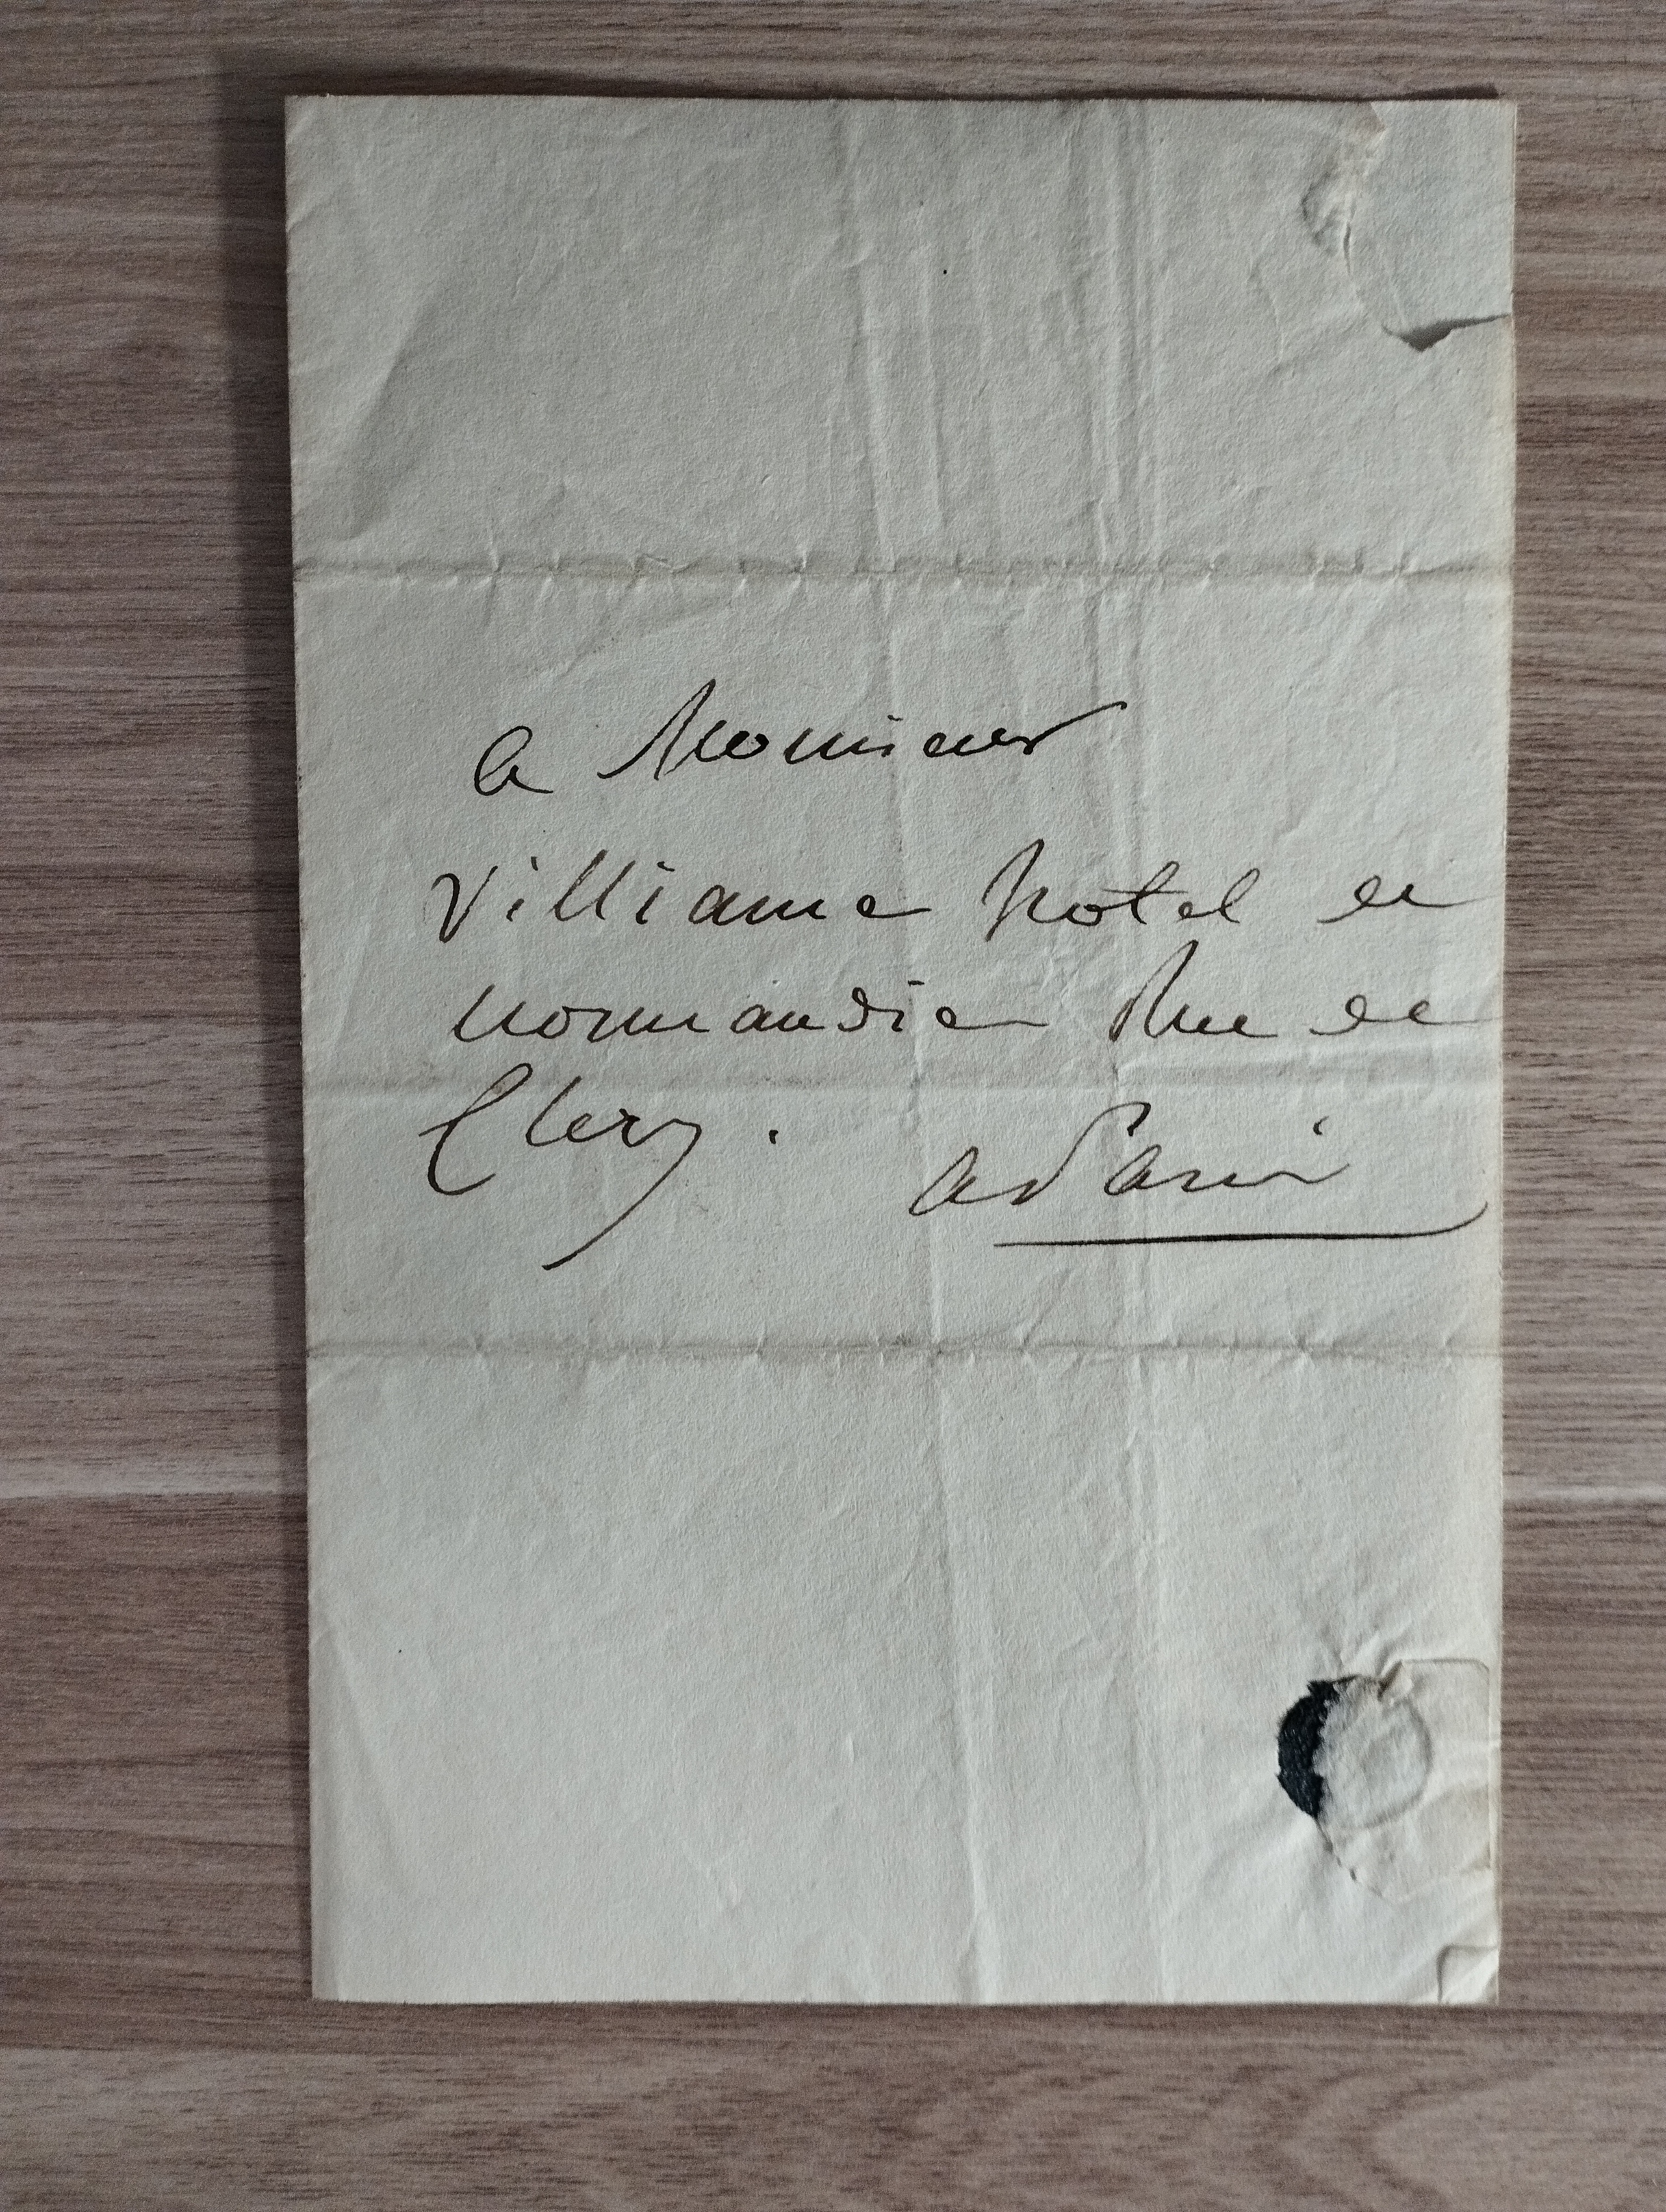 a Monsieur
Villiame hotel de
normandie Rue de
Clery.
a Paris